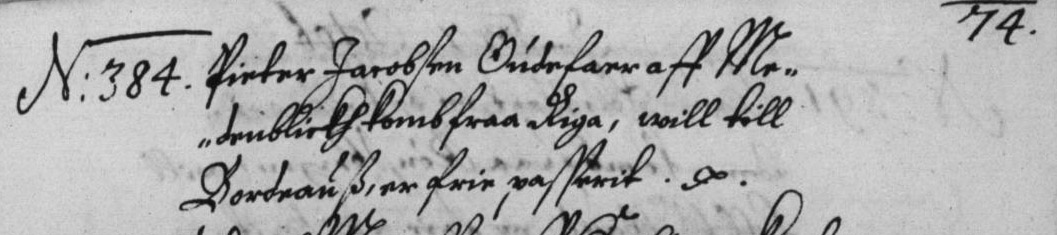 74.
N: 384. Pieter Jacobsen Oudefaer aff Me„
„denblickh komb fraa Riga, will till
Bordeauß, er frie passerit.